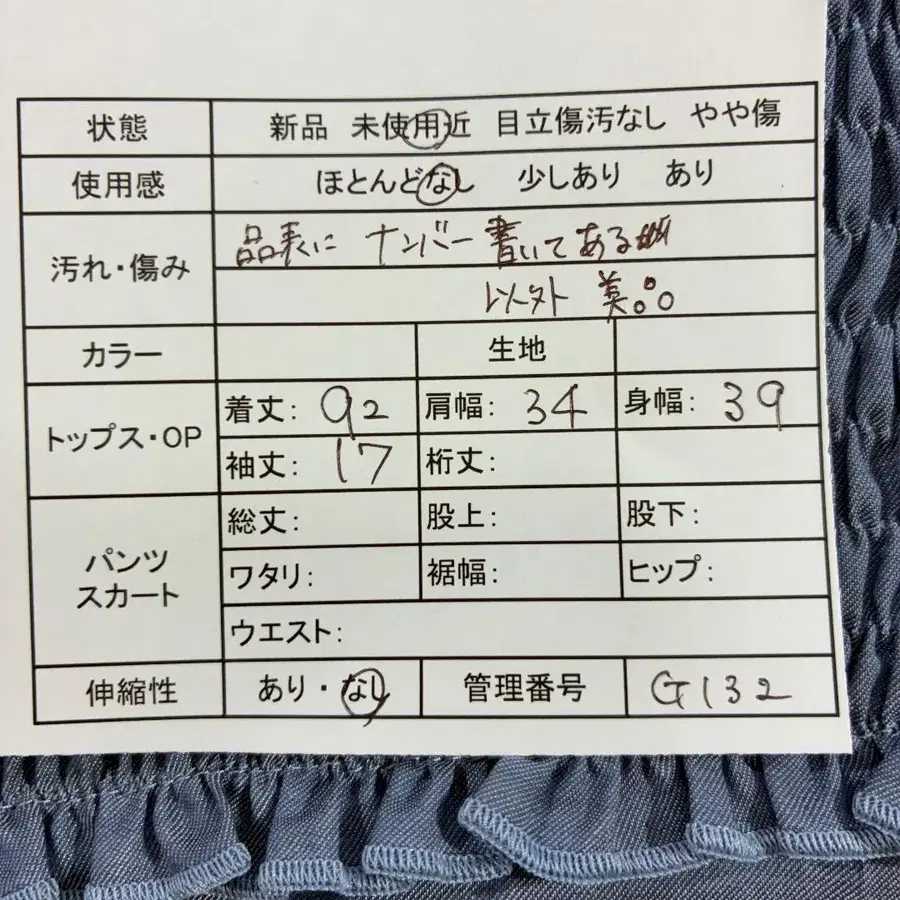 状態 新品 未使用近 目立傷汚なし やや傷
使用感 ほとんどなし 少しあり あり
汚れ・傷み 品表に ナンバー 書いてある
以外 美品
カラー 生地
トップス・OP 着丈: 92 肩幅: 34 身幅: 39
袖丈: 17 桁丈:
パンツ スカート 総丈: 股上: 股下:
ワタリ: 裾幅: ヒップ:
ウエスト:
伸縮性 あり・なし 管理番号 G132